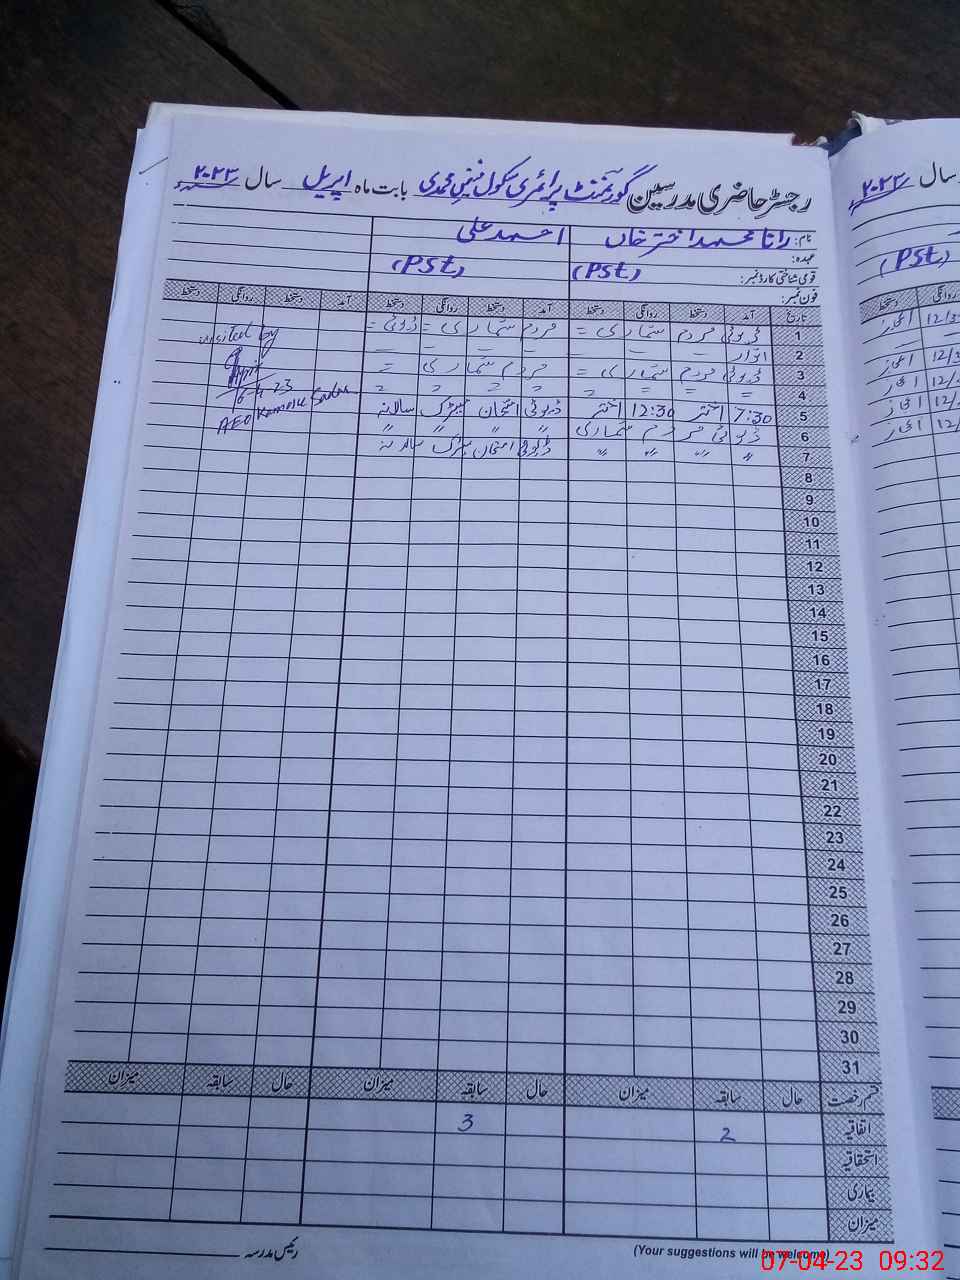 رجسٹر حاضری مدرسین گورنمنٹ پرائمری سکول بابت ماہ اپریل سال ۲۰۲۳
نام: رانا محمد اختر خاں احمد علی
عہدہ: (PSt) (PSt)
قومی شناختی کارڈ نمبر:
فون نمبر:
تاریخ آمد دستخط روانگی دستخط آمد دستخط روانگی دستخط آمد دستخط روانگی دستخط
1 ڈیوٹی مردم شماری = مردم شماری = ڈیوٹی =
2 اتوار - - - - - - -
3 ڈیوٹی مردم شماری = مردم شماری =
4 = = = =
5 7:30 اختر 12:30 اختر ڈیوٹی امتحان میٹرک سالانہ
6 ڈیوٹی مردم شماری 〃 〃 〃 〃
7 〃 〃 〃 〃 ڈیوٹی امتحان میٹرک سالانہ
visited by
6-4-23
AEO
8
9
10
11
12
13
14
15
16
17
18
19
20
21
22
23
24
25
26
27
28
29
30
31
قسم رخصت حال سابقہ میزان حال سابقہ میزان حال سابقہ میزان
اتفاقیہ 2 3
استحقاقیہ
بیماری
میزان
رئیس مدرسہ
(Your suggestions will be welcome)
سال ۲۰۲۳
(PSt)
روانگی دستخط
12/3
12/3
12/
12/
12/
07-04-23 09:32